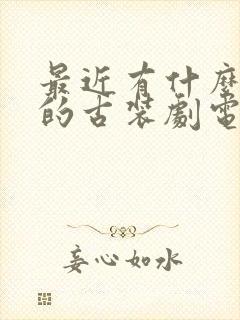 最近有什麼
的古裝劇電
妄心如水